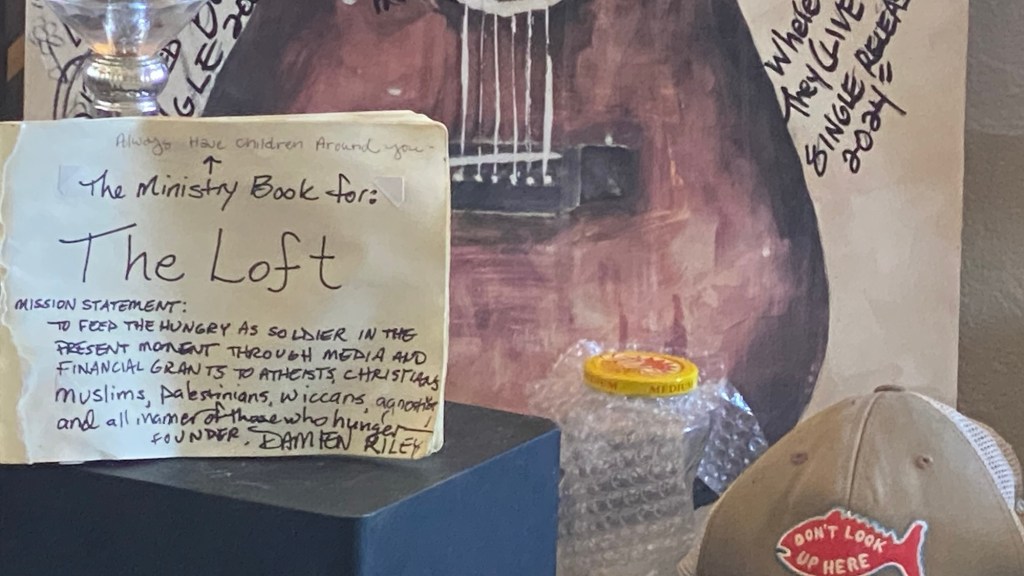 GLEDO
Where
They (LIVE
SINGLE RELEAS
2024=
Always Have children Around you-
↑
The Ministry Book for:
The Loft
MISSION STATEMENT:
TO FEED THE HUNGRY AS SOLDIER IN THE
PRESENT MOMENT THROUGH MEDIA AND
FINANCIAL GRANTS TO ATHEISTS, CHRISTIANS
Muslims, Palestinians, Wiccans, agnostics
and all manner of those who hunger!
FOUNDER, DAMIEN RILEY
MEDIUM
DON'T LOOK
UP HERE